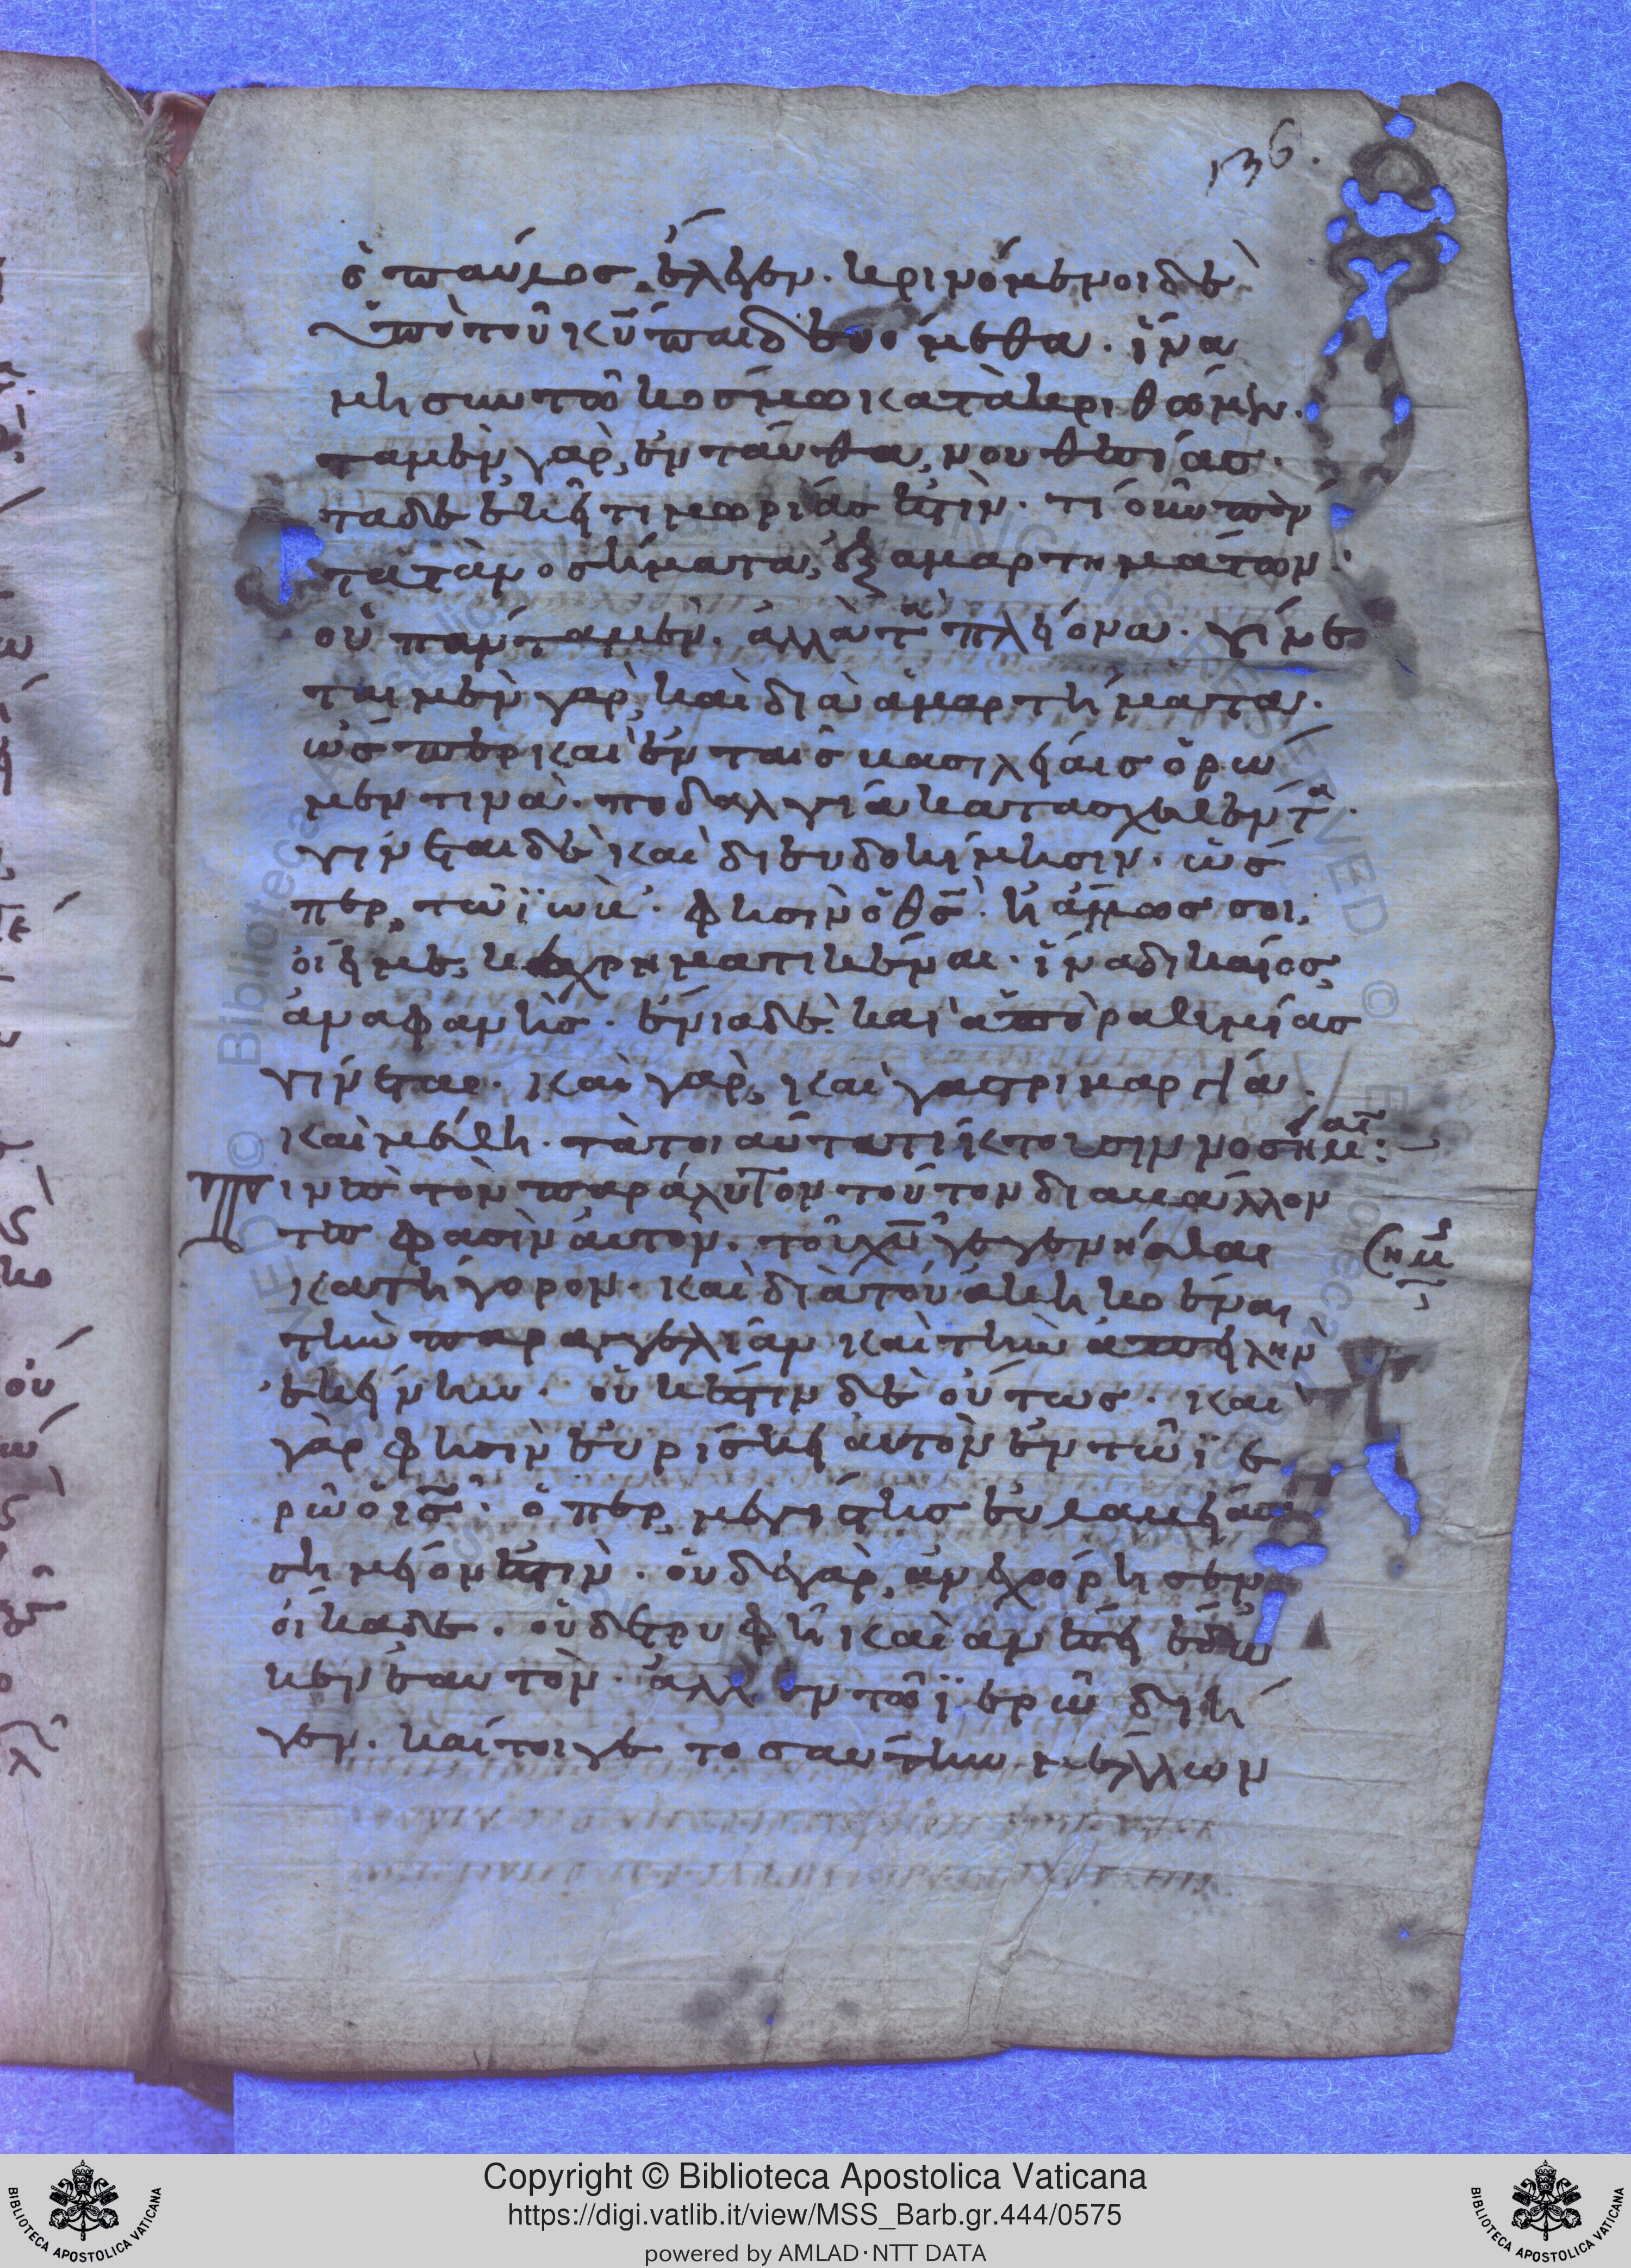 136.
ὁ παῦλος ἔλεγεν. κρινόμενοι δὲ
ὑπὸ τοῦ κυ παιδευόμεθα. ἵνα
μὴ σὺν τῶ κόσμω κατακριθῶμεν.
τὰ μὲν γὰρ, ἐνταῦθα, νουθεσίας.
τὰ δὲ ἐκεῖ τιμωρίας ἐστὶν. τί οὖν πάν
τα τὰ νοσήματα, ἐξ αμαρτημάτων.
οὐ πάντα μὲν. ἀλλὰ τὰ πλείονα. γίνε
ται μὲν γὰρ, καὶ διὰ ἁμαρτήματα.
ὥσπερ καὶ ἐν ταῖς βασιλείαις ὁρῶ
μεν τινὰ. ποδαλγία κατασχεθέντα.
γίνεται δὲ καὶ δι ευδοκίμησιν. ὥσ
περ, τῶ ϊώβ. φησὶν ὁ θς. ἢ ἄλλως σοι,
οἴει με, κεχρηματικέναι. ἵνα δίκαιος
ἀναφανῆς. ἔνια δὲ καὶ ἀπὸ ραθυμίας
γίνεται. καὶ γὰρ, καὶ γαστριμαργία.
καὶ μέθη. τὰ τοιαῦτα τίκτουσιν νοσήματα:
Τινὲς τὸν παράλυτον τοῦτον διαβάλλον
τες φασὶν αυτὸν. τοῦ χυ γεγενῆσθαι
κατήγορον. καὶ διὰ τοῦ ἀκηκοέναι
τὴν παραγγελίαν καὶ τὴν ἀπειλὴν
ἐκείνην. οὐκ ἔστιν δὲ οὕτως. καὶ
γὰρ φησὶν εὑρίσκει αὐτὸν ἐν τῶ ϊε
ρῶ ὁ ις. ὅπερ, μεγίστης εὐλαβείας
σημεῖον ἐστὶν. οὐδὲ γὰρ, ἀνεχώρησεν
οἴκαδε. οὐδὲ τρυφῆ καὶ ανέσει ἔδω
κεν ἑαυτὸν. ἀλλ ἐν τῶ ϊερῶ διῆ
γεν. καίτοιγε τοσαύτην μέλλων
Copyright © Biblioteca Apostolica Vaticana
https://digi.vatlib.it/view/MSS_Barb.gr.444/0575
powered by AMLAD·NTT DATA
BIBLIOTECA APOSTOLICA VATICANA
BIBLIOTECA APOSTOLICA VATICANA